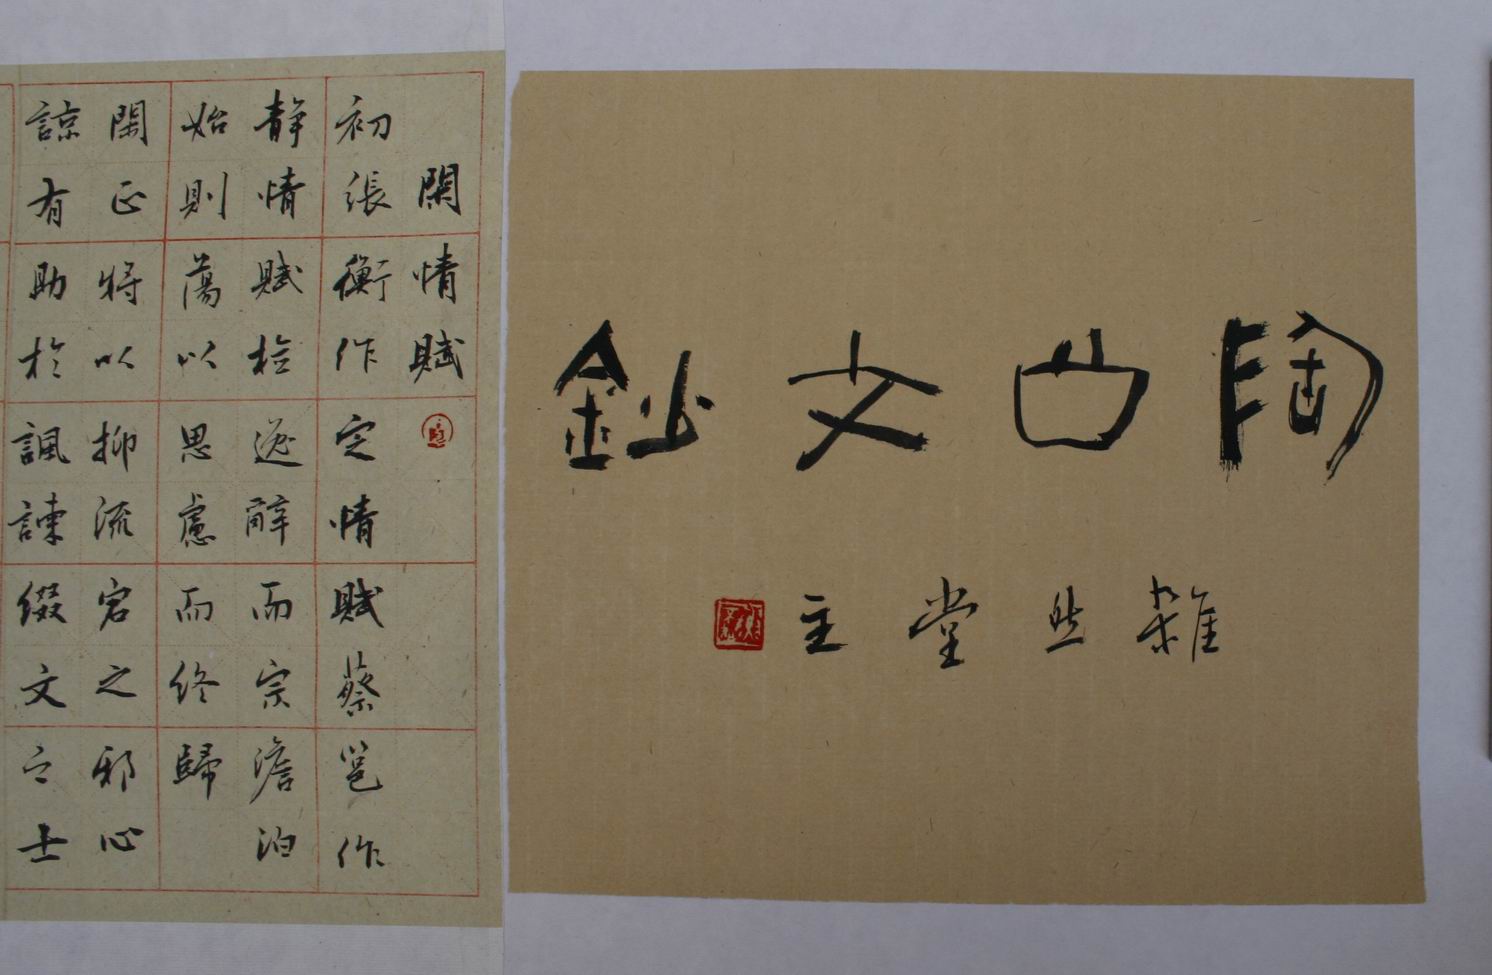 陶公文鈔
雜堂主
閑情賦
初張衡作定情賦蔡邕作
靜情賦檢逸辭而宗澹泊
始則蕩以思慮而終歸
閑正將以抑流宕之邪心
諒有助於諷諫綴文之士